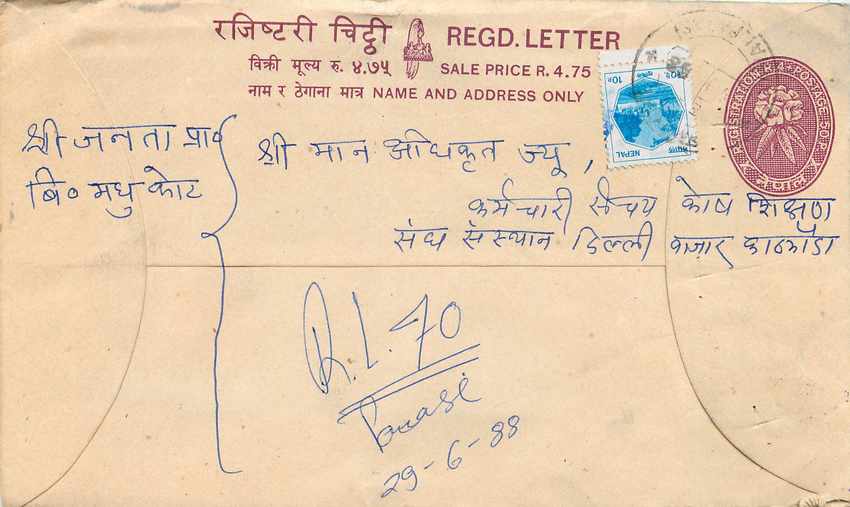 रजिष्टरी चिट्ठी REGD. LETTER
बिक्री मूल्य रु. ४.७५ SALE PRICE R. 4.75
नाम र ठेगाना मात्र NAME AND ADDRESS ONLY
10P. 
NEPAL
REGISTRATION & POSTAGE 50P.
श्री जनता प्रा०
बि० मधु कोट
श्री मान अधिकृत ज्यू,
कर्मचारी संचय कोष शिक्षण
संघ संस्थान डिल्ली बजार काठमाँडौ
R.L. 40
29-6-88